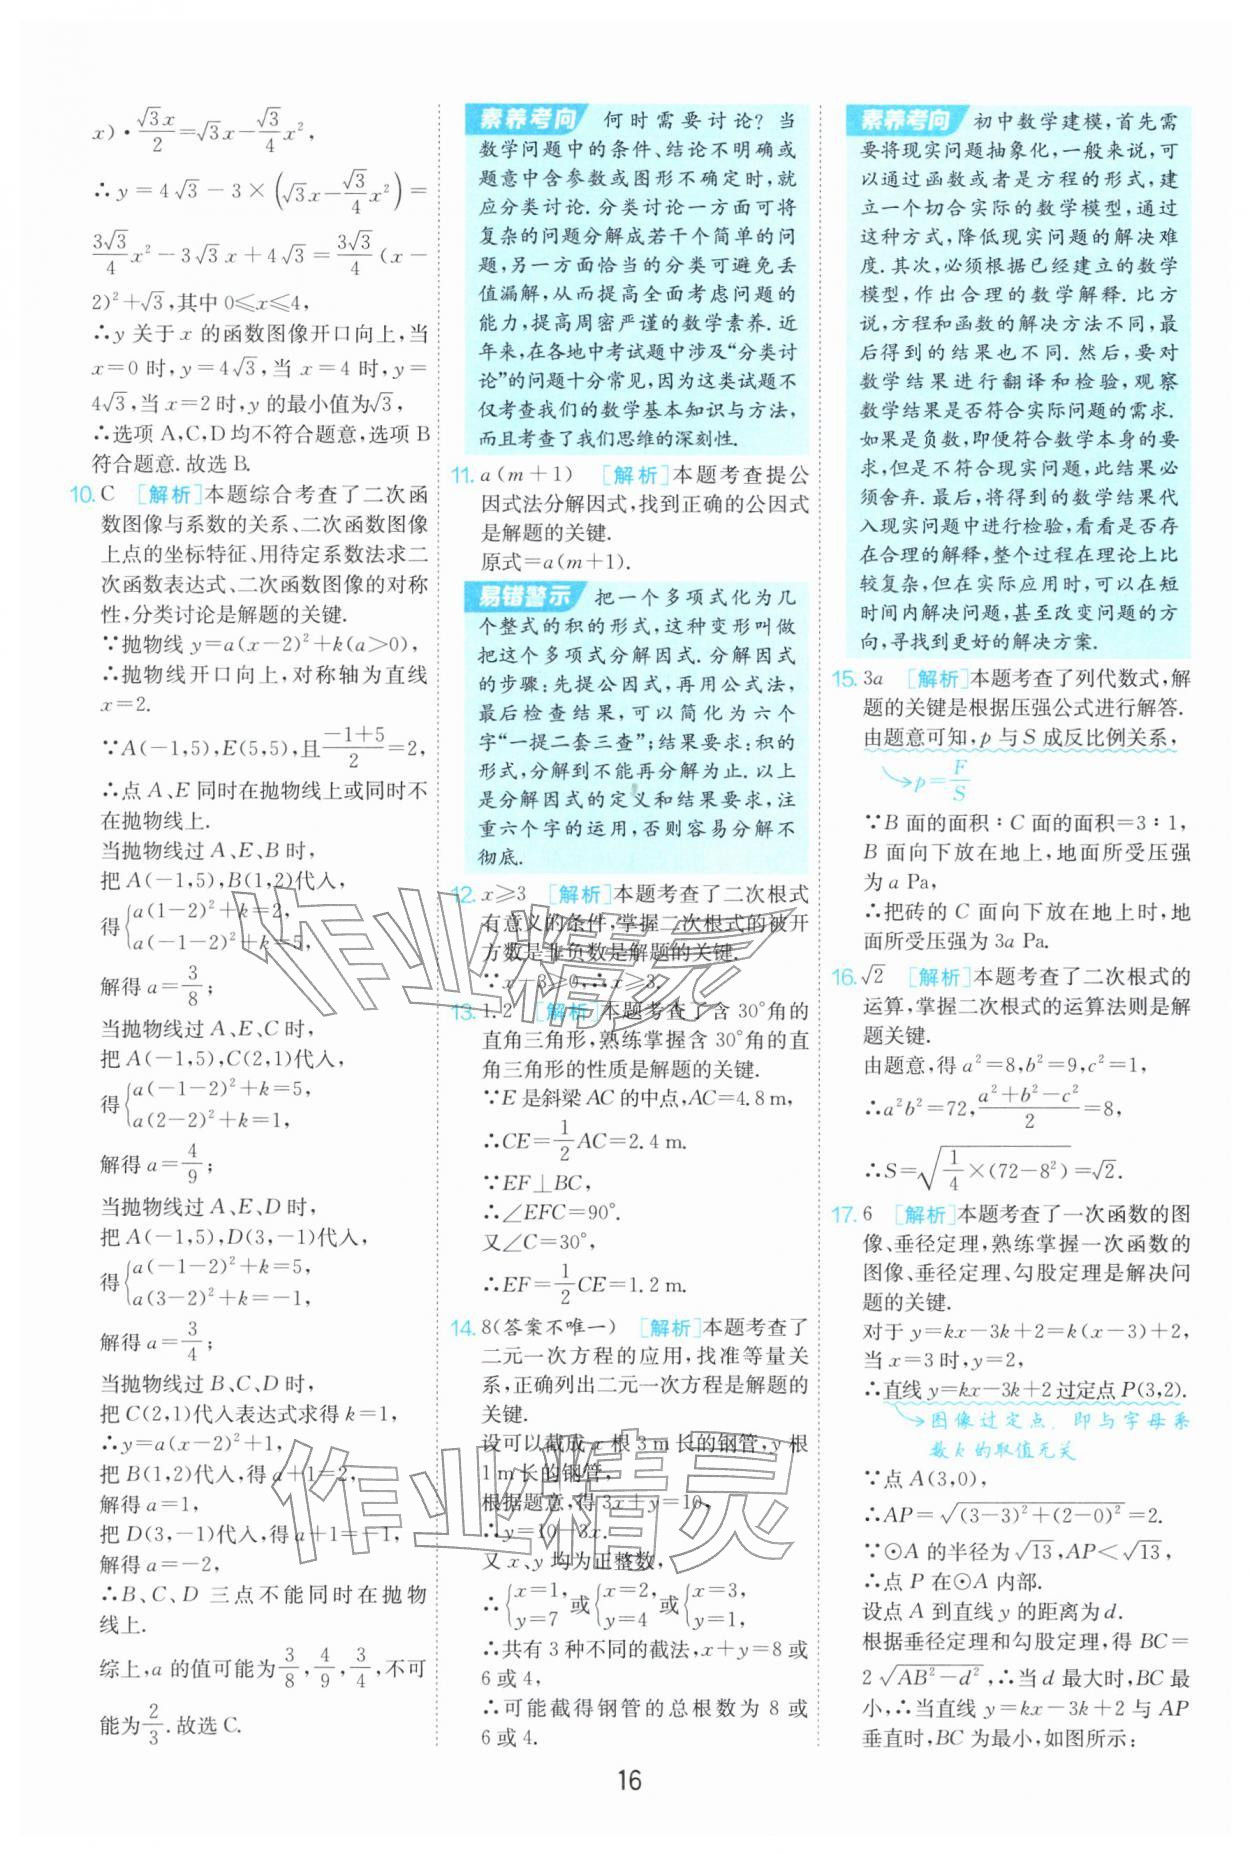 x)·√3x/2=√3x-√3/4x²,
∴y=4√3-3×(√3x-√3/4x²)=
3√3/4x²-3√3x+4√3=3√3/4(x-
2)²+√3,其中0≤x≤4,
∴y关于x的函数图像开口向上,当
x=0时,y=4√3,当x=4时,y=
4√3,当x=2时,y的最小值为√3,
∴选项A,C,D均不符合题意,选项B
符合题意.故选B.
10. C [解析]本题综合考查了二次函
数图像与系数的关系、二次函数图像
上点的坐标特征、用待定系数法求二
次函数表达式、二次函数图像的对称
性,分类讨论是解题的关键.
∵抛物线y=a(x-2)²+k(a>0),
∴抛物线开口向上,对称轴为直线
x=2.
∵A(-1,5),E(5,5),且(-1+5)/2=2,
∴点A、E同时在抛物线上或同时不
在抛物线上.
当抛物线过A、E、B时,
把A(-1,5),B(1,2)代入,
得{a(1-2)²+k=2,
a(-1-2)²+k=5,
解得a=3/8;
当抛物线过A、E、C时,
把A(-1,5),C(2,1)代入,
得{a(-1-2)²+k=5,
a(2-2)²+k=1,
解得a=4/9;
当抛物线过A、E、D时,
把A(-1,5),D(3,-1)代入,
得{a(-1-2)²+k=5,
a(3-2)²+k=-1,
解得a=3/4;
当抛物线过B、C、D时,
把C(2,1)代入表达式求得k=1,
∴y=a(x-2)²+1,
把B(1,2)代入,得a+1=2,
解得a=1,
把D(3,-1)代入,得a+1=-1,
解得a=-2,
∴B、C、D三点不能同时在抛物
线上.
综上,a的值可能为3/8,4/9,3/4,不可
能为2/3.故选C.
素养考向 何时需要讨论?当
数学问题中的条件、结论不明确或
题意中含参数或图形不确定时,就
应分类讨论.分类讨论一方面可将
复杂的问题分解成若干个简单的问
题,另一方面恰当的分类可避免丢
值漏解,从而提高全面考虑问题的
能力,提高周密严谨的数学素养.近
年来,在各地中考试题中涉及“分类讨
论”的问题十分常见,因为这类试题不
仅考查我们的数学基本知识与方法,
而且考查了我们思维的深刻性.
11. a(m+1) [解析]本题考查提公
因式法分解因式,找到正确的公因式
是解题的关键.
原式=a(m+1).
易错警示 把一个多项式化为几
个整式的积的形式,这种变形叫做
把这个多项式分解因式.分解因式
的步骤:先提公因式,再用公式法,
最后检查结果,可以简化为六个
字“一提二套三查”;结果要求:积的
形式,分解到不能再分解为止.以上
是分解因式的定义和结果要求,注
重六个字的运用,否则容易分解不
彻底.
12. x≥3 [解析]本题考查了二次根式
有意义的条件,掌握二次根式的被开
方数是非负数是解题的关键.
∵x-3≥0,∴x≥3.
13. 1.2 [解析]本题考查了含30°角的
直角三角形,熟练掌握含30°角的直
角三角形的性质是解题的关键.
∵E是斜梁AC的中点,AC=4.8 m,
∴CE=1/2AC=2.4 m.
∵EF⊥BC,
∴∠EFC=90°.
又∠C=30°,
∴EF=1/2CE=1.2 m.
14. 8(答案不唯一) [解析]本题考查了
二元一次方程的应用,找准等量关
系,正确列出二元一次方程是解题的
关键.
设可以截成x根3 m长的钢管,y根
1 m长的钢管,
根据题意,得3x+y=10,
∴y=10-3x.
又x、y均为正整数,
∴{x=1, y=7 或{x=2, y=4 或{x=3, y=1,
∴共有3种不同的截法,x+y=8或
6或4,
∴可能截得钢管的总根数为8或
6或4.
素养考向 初中数学建模,首先需
要将现实问题抽象化,一般来说,可
以通过函数或者是方程的形式,建
立一个切合实际的数学模型,通过
这种方式,降低现实问题的解决难
度.其次,必须根据已经建立的数学
模型,作出合理的数学解释.比方
说,方程和函数的解决方法不同,最
后得到的结果也不同.然后,要对
数学结果进行翻译和检验,观察
数学结果是否符合实际问题的需求.
如果是负数,即便符合数学本身的要
求,但是不符合现实问题,此结果必
须舍弃.最后,将得到的数学结果代
入现实问题中进行检验,看看是否存
在合理的解释,整个过程在理论上比
较复杂,但在实际应用时,可以在短
时间内解决问题,甚至改变问题的方
向,寻找到更好的解决方案.
15. 3a [解析]本题考查了列代数式,解
题的关键是根据压强公式进行解答.
由题意可知,p与S成反比例关系,
p=F/S
∵B面的面积∶C面的面积=3∶1,
B面向下放在地上,地面所受压强
为a Pa,
∴把砖的C面向下放在地上时,地
面所受压强为3a Pa.
16. √2 [解析]本题考查了二次根式的
运算,掌握二次根式的运算法则是解
题关键.
由题意,得a²=8,b²=9,c²=1,
∴a²b²=72,(a²+b²-c²)/2=8,
∴S=√(1/4×(72-8²))=√2.
17. 6 [解析]本题考查了一次函数的图
像、垂径定理,熟练掌握一次函数的
图像、垂径定理、勾股定理是解决问
题的关键.
对于y=kx-3k+2=k(x-3)+2,
当x=3时,y=2,
∴直线y=kx-3k+2过定点P(3,2).
图像过定点,即与字母系
数k的取值无关
∵点A(3,0),
∴AP=√((3-3)²+(2-0)²)=2.
∵⊙A的半径为√13,AP<√13,
∴点P在⊙A内部.
设点A到直线y的距离为d.
根据垂径定理和勾股定理,得BC=
2√(AB²-d²),∴当d最大时,BC最
小,∴当直线y=kx-3k+2与AP
垂直时,BC为最小,如图所示:
作业精灵
作业精灵
16